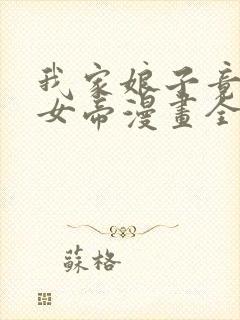 我家娘子竟
女帝漫畫全
蘇格